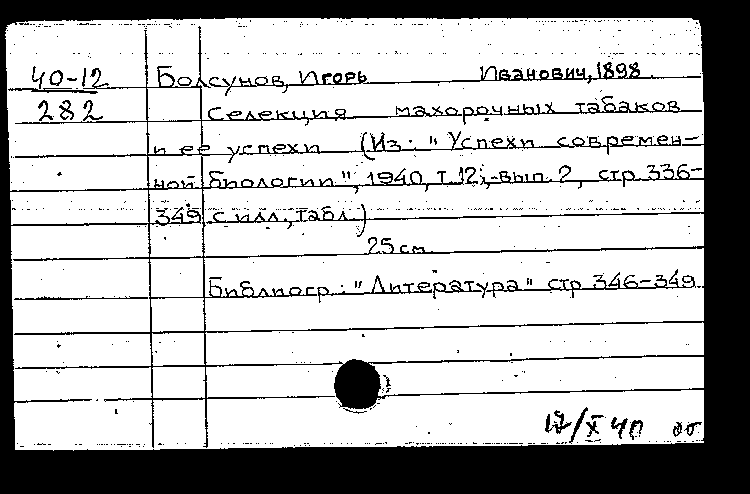 40-12 Болсунов, Игорь Иванович, 1898
282 Селекция махорочных табаков
и ее успехи (Из: "Успехи современ-
ной биологии", 1940, т. 12, вып. 2, стр 336-
349 с илл., табл.)
25 см
Библиогр.: "Литература" стр 346-349
17/X 40